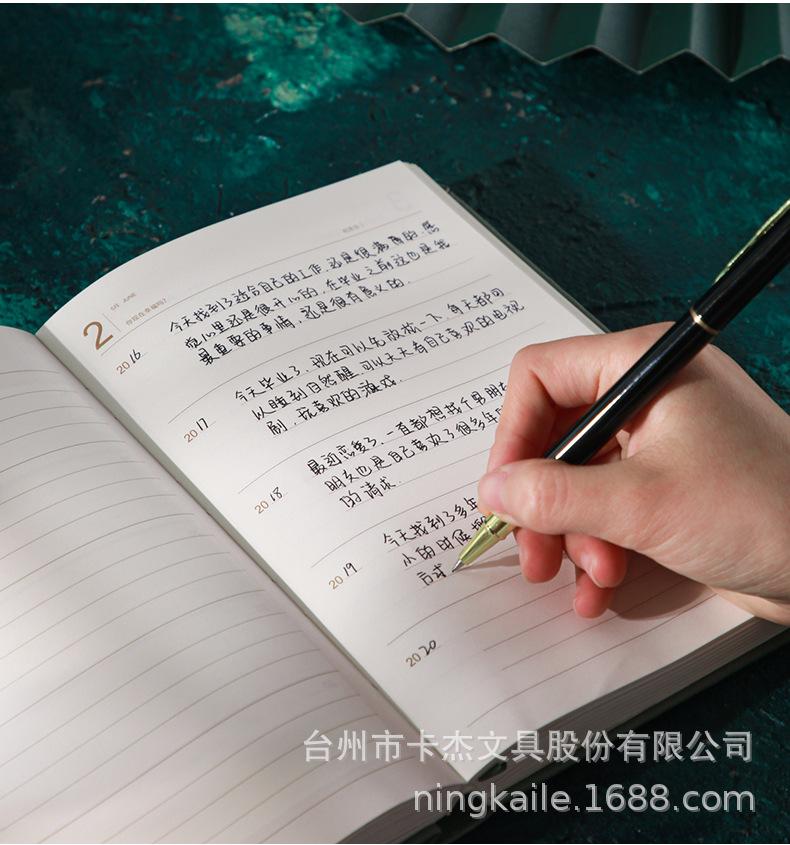 2
6月 JUNE
你现在幸福吗?
2016
今天找到了适合自己的工作,还是很满意的,感
觉心里还是很开心的,在毕业之前这也是我
最重要的事情,还是很有意义的.
2017
今天毕业了,现在可以先放松一下,每天都可
以睡到自然醒,可以天天看自己喜欢的电视
剧,玩喜欢的游戏.
2018
最近恋爱了,一直都想找个男朋友
朋友也是自己喜欢了很多年
的请求.
2019
今天找到了多年
小的时候
2020
台州市卡杰文具股份有限公司
ningkaile.1688.com